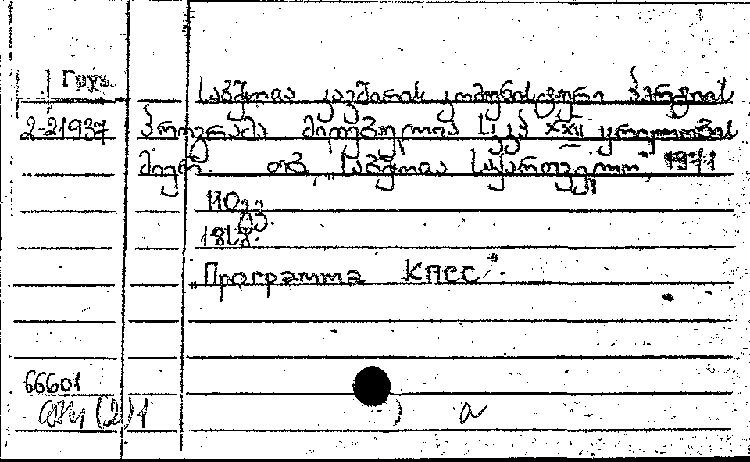 Груз.
საბჭოთა კავშირის კომუნისტური პარტიის
2-21937 პროგრამა მიღებულია სკკპ XXII ყრილობის
მიერ. თბ. „საბჭოთა საქართველო", 1971
110გვ.
18კ.
"Программа КПСС".
66601
(2) 1
a